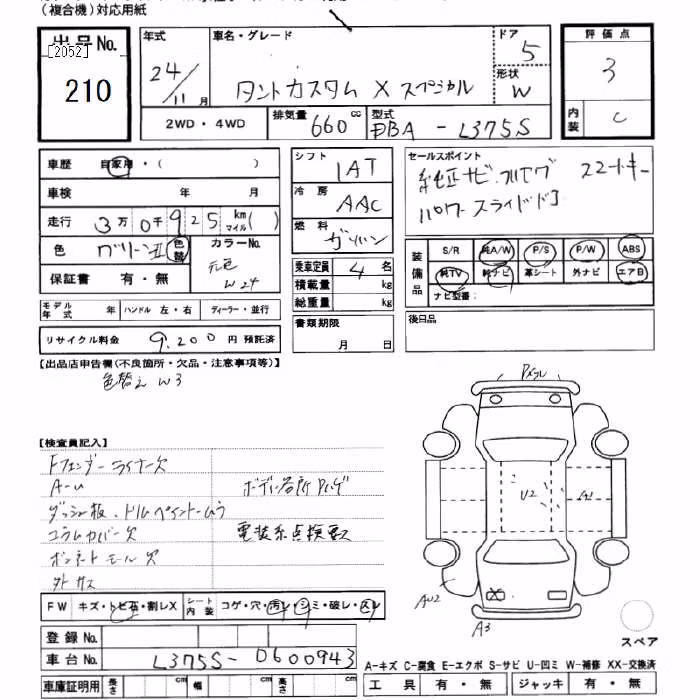 （複合機）対応用紙
出品No.
[2052]
210
年式
24/11月
車名・グレード
タントカスタム X スペシャル
ドア
5
形状
W
評価点
3
内装
C
2WD・4WD
排気量 660 cc
型式
DBA - L375S
車歴 自家用・( )
車検 年 月
走行 3万0千925 km マイル( )
色 グリーンII 色替
カラーNo.
元色
W24
保証書 有・無
モデル年式 年 ハンドル 左・右 ディーラー・並行
リサイクル料金 9.200 円 預託済
シフト
IAT
冷房
AAC
燃料
ガソリン
乗車定員 4 名
積載量 kg
総重量 kg
書類期限
月 日
セールスポイント
純正ナビ.フルセグ スマートキー
パワースライドドア
装備品
S/R 純A/W P/S P/W ABS
純TV 純ナビ 革シート 外ナビ エアB
ナビ型番:
後日品
【出品店申告欄(不良箇所・欠品・注意事項等)】
色替え W3
【検査員記入】
Fフェンダーライナー欠
ダッシュ板、ドアペイントムラ
コラムカバー欠
電装系点検要
ボンネットモール欠
外 キズ
FW キズ・トビ石・割レX
シート内装 コゲ・穴・汚レ・シミ・破レ・スレ
登録No.
車台No. L375S-0600943
車庫証明用 長さ cm 幅 cm 高さ cm
U2
A2
AU2
A3
スペア
A-キズ C-腐食 E-エクボ S-サビ U-凹ミ W-補修 XX-交換済
工具 有・無 ジャッキ 有・無